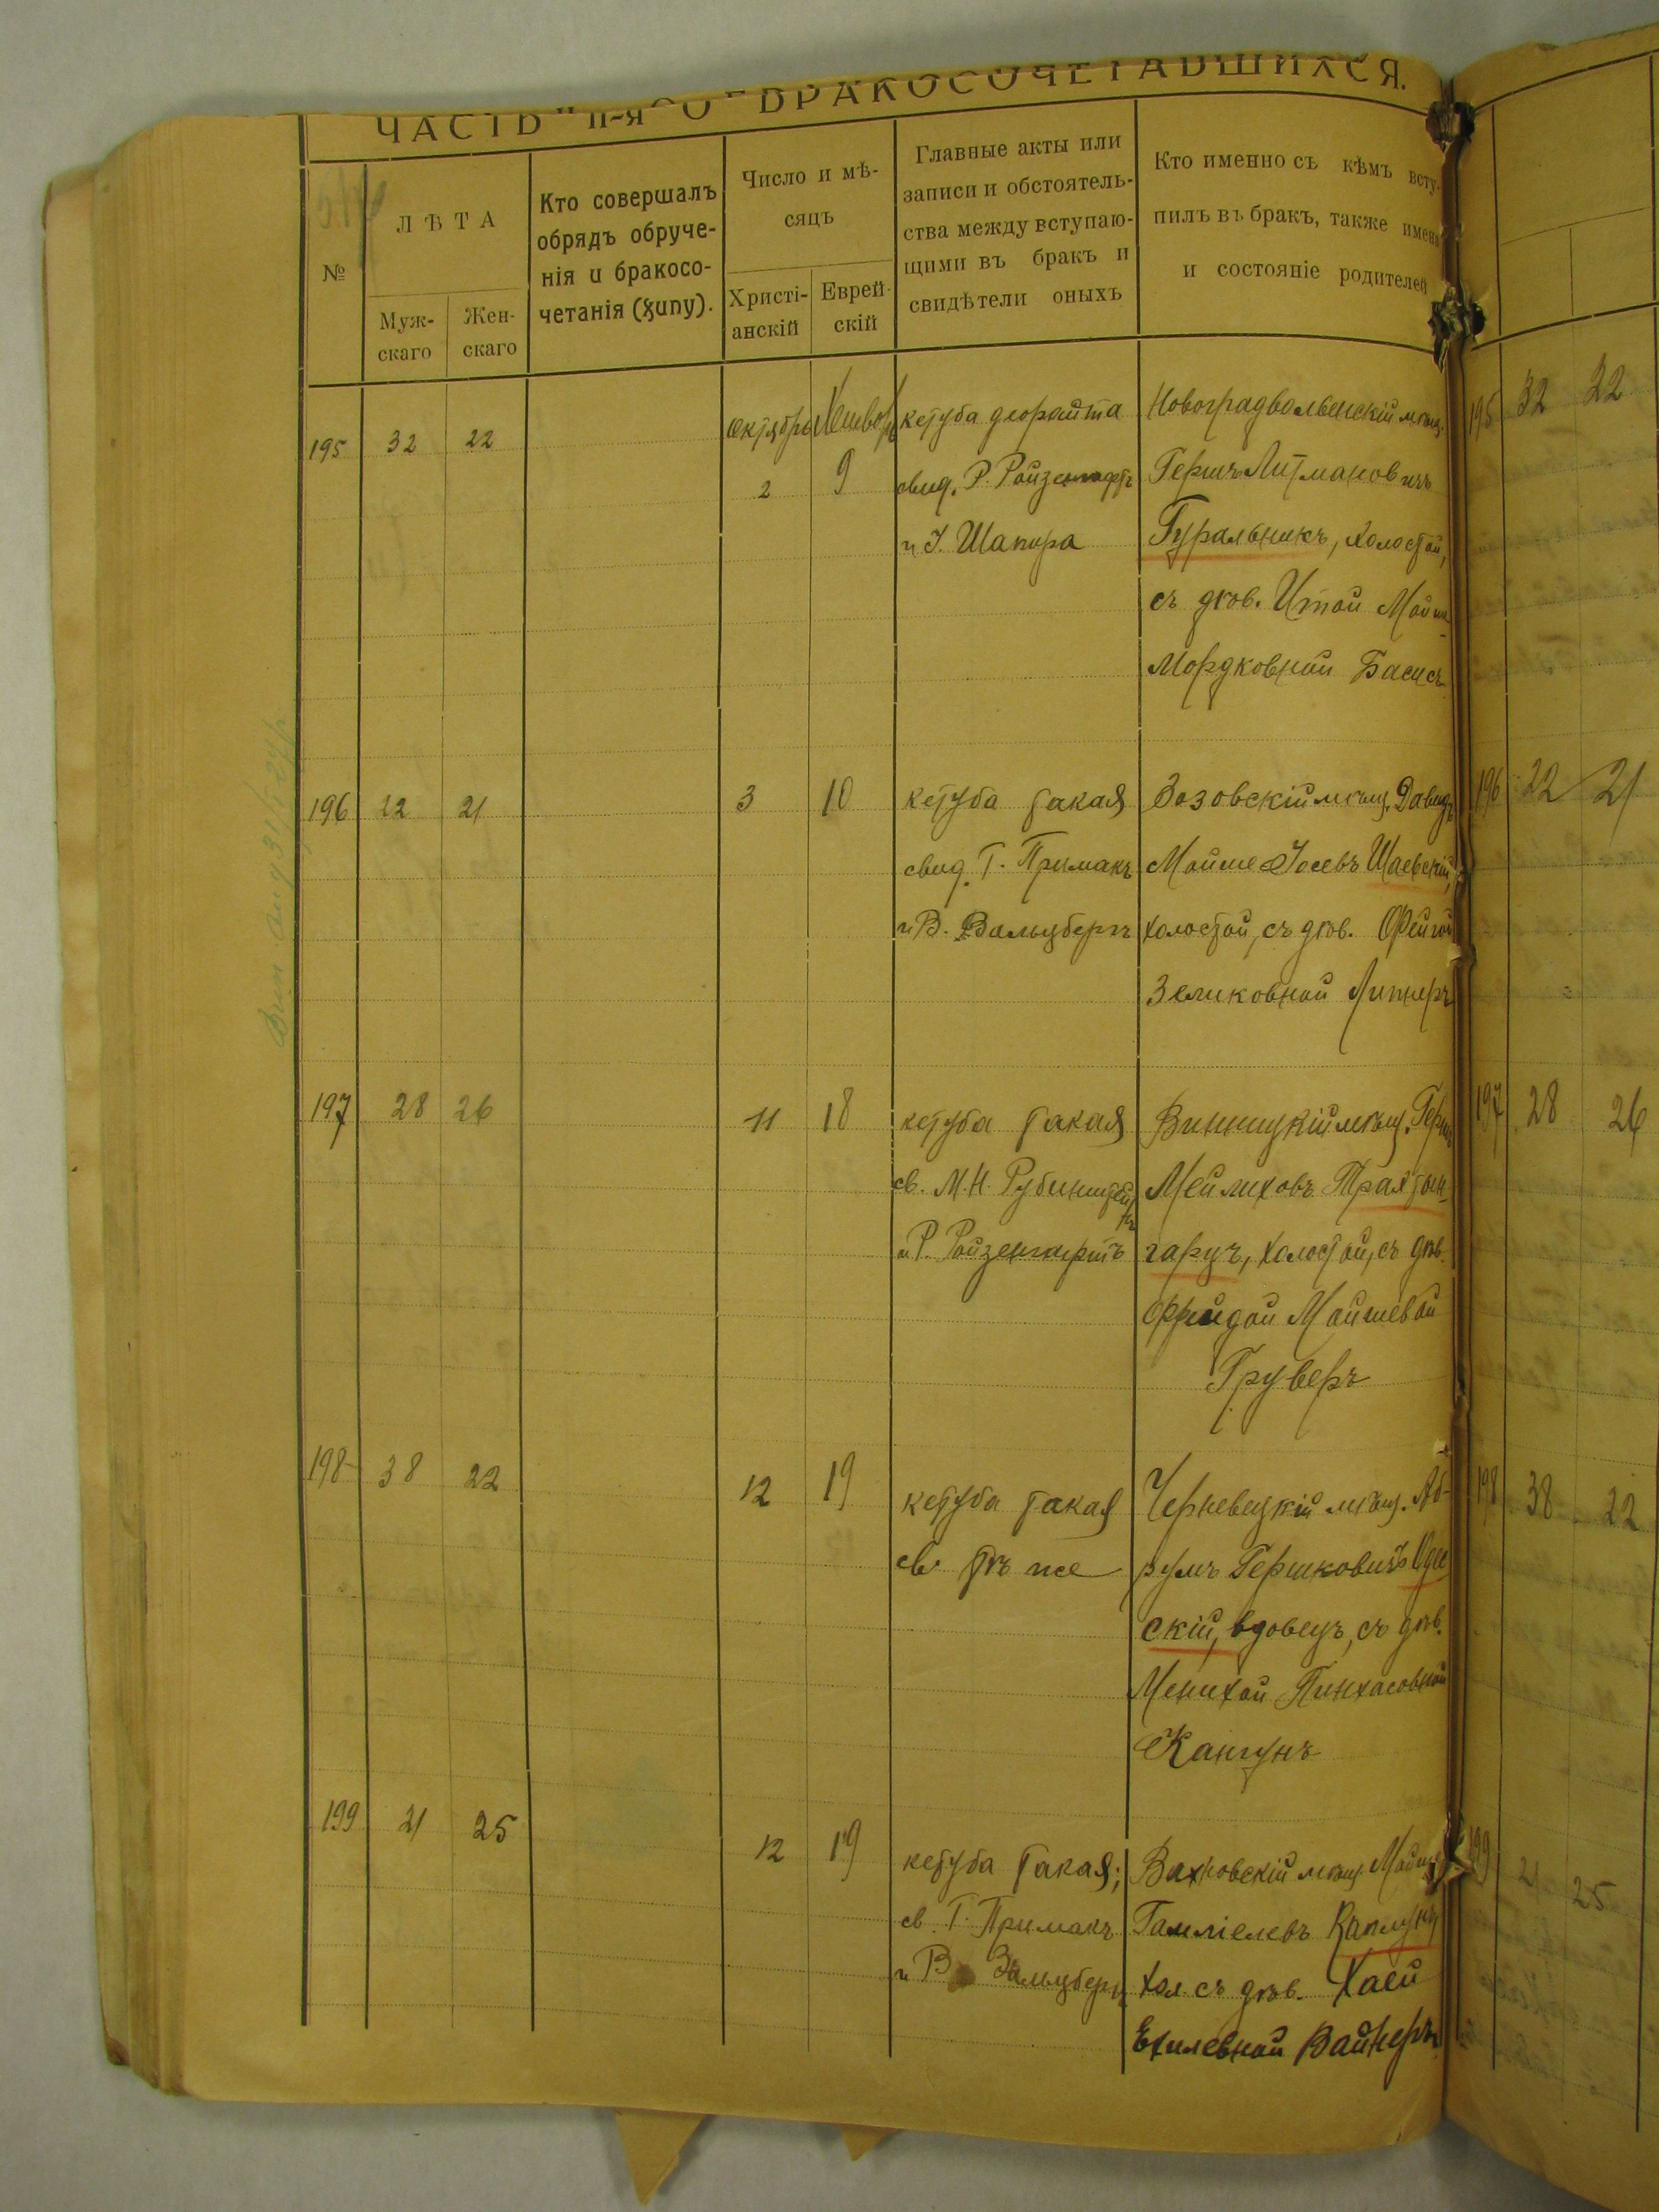 ЧАСТЬ II-я О БРАКОСОЧЕТАВШИХСЯ.
№
ЛѢТА
Муж-
скаго
Жен-
скаго
Кто совершалъ
обрядъ обруче-
нія и бракосо-
четанія (хупу).
Число и мѣ-
сяцъ
Христі-
анскій
Еврей-
скій
Главные акты или
записи и обстоятель-
ства между вступаю-
щими въ бракъ и
свидѣтели оныхъ
Кто именно съ кѣмъ всту-
пилъ въ бракъ, также имена
и состояніе родителей
195 32 22
Октябрь
2 9
кетуба деорайта
свид. Р. Ройзенгафтъ
и І. Шапира
Новоградволынскій мѣщ.
Гершъ Литмановичъ
Гуральникъ, холостой,
съ дѣв. Итой Мойше
Мордковной Басисъ
195 32 22
196 22 21
3 10
кетуба такая
свид. Г. Примакъ
и В. Вальцбергъ
Зозовскій мѣщ. Давидъ
Мойше Іосевъ Шаевскій,
холостой, съ дѣв. Фейгой
Зелиховной Липнеръ
196 22 21
197 28 26
11 18
кетуба такая
св. М.Н. Рубинштейнъ
и Р. Ройзенгафтъ
Винницкій мѣщ. Гершъ
Мейлиховъ Трахтен-
гарцъ, холостой, съ дѣв.
Фрейдой Мойшевой
Груверъ
197 28 26
198 38 22
12 19
кетуба такая
св. тѣ же
Черневецкій мѣщ. Аб-
румъ Гершковичъ Оде
скій, вдовецъ, съ дѣв.
Менихой Пинхасовной
Кангунъ
198 38 22
199 21 25
12 19
кетуба такая;
св. Г. Примакъ
и В. Зальцбергъ
Вахновскій мѣщ. Мойше
Гамліелевъ Каплунъ
хол. съ дѣв. Хаей
Ехилевной Вайнеръ
199 21 25